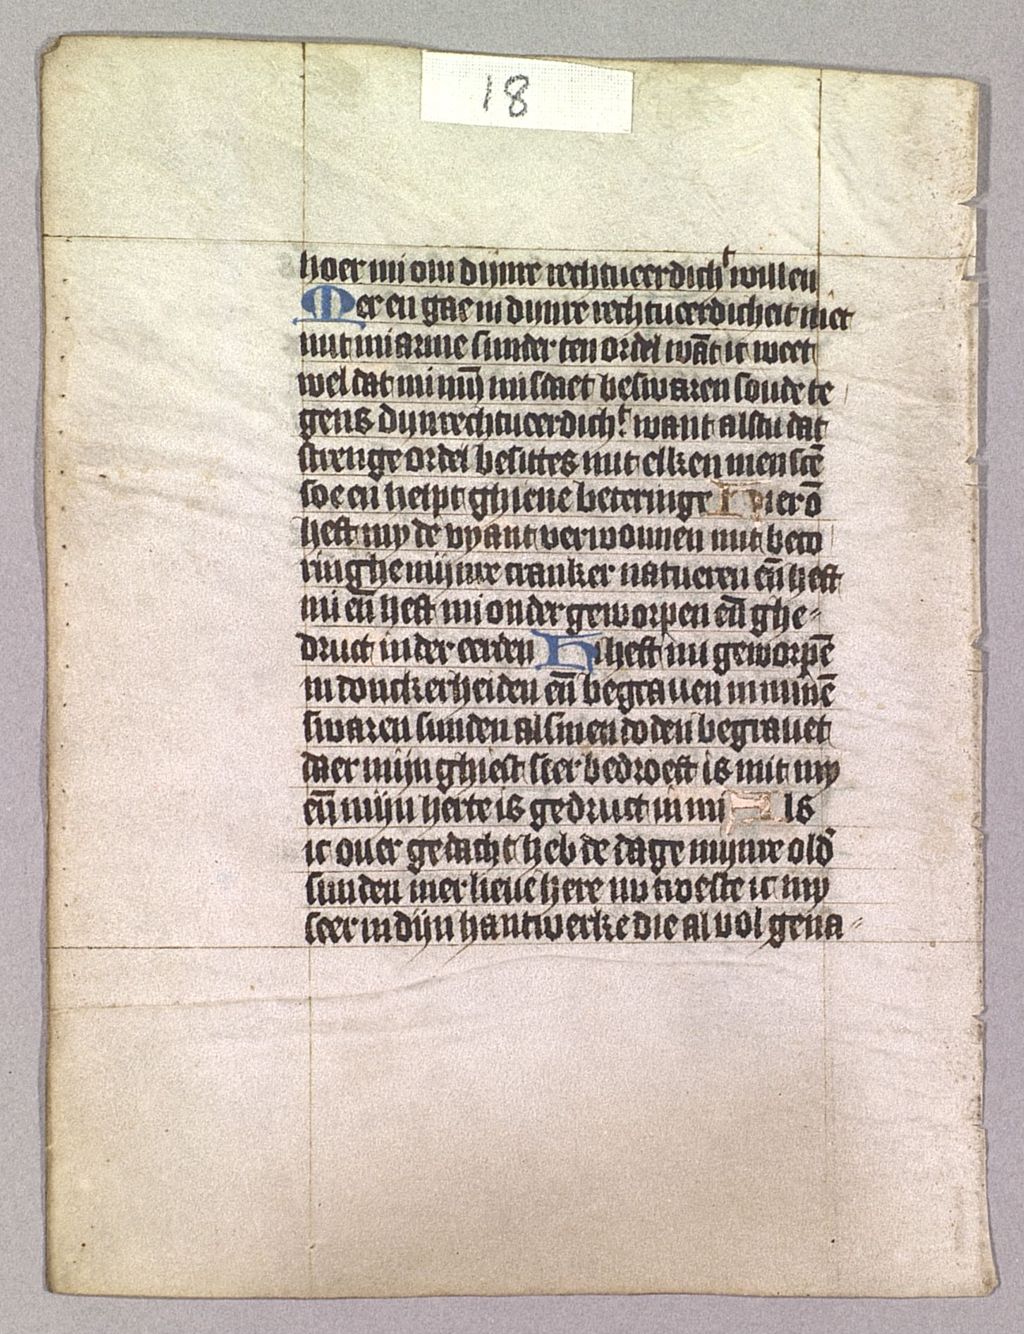 18
hoer mi om dijnre rechtueerdichᵗ willen
Mer en gae in dijnre rechtueerdicheit niet
mit mi arme sunder ten ordel wāt ic weet
wel dat mi mijn misdaet beswaren soude te
gens dijn rechtueerdichᵗ want alstu dat
strenge ordel besittes mit elken menscē
soe en helpt ghiene beteringe Hier ō
heft my de vyant verwonnen mit beco
ringhe mijnre cranker natueren eñ heft
mi eñ heft mi onder geworpen eñ ghe⸗
druct in der eerden Hi heft mi geworpē
in donckerheiden eñ begrauen in minē
swaren sunden als men doden begrauet
daer mijn ghiest seer bedroeft is mit my
eñ mijn herte is gedruct in mi Als
ic ouer gedacht heb de dage mijnre old
sunden mer lieue here nu troeste ic my
seer in dijn hantwerke die al vol gena⸗